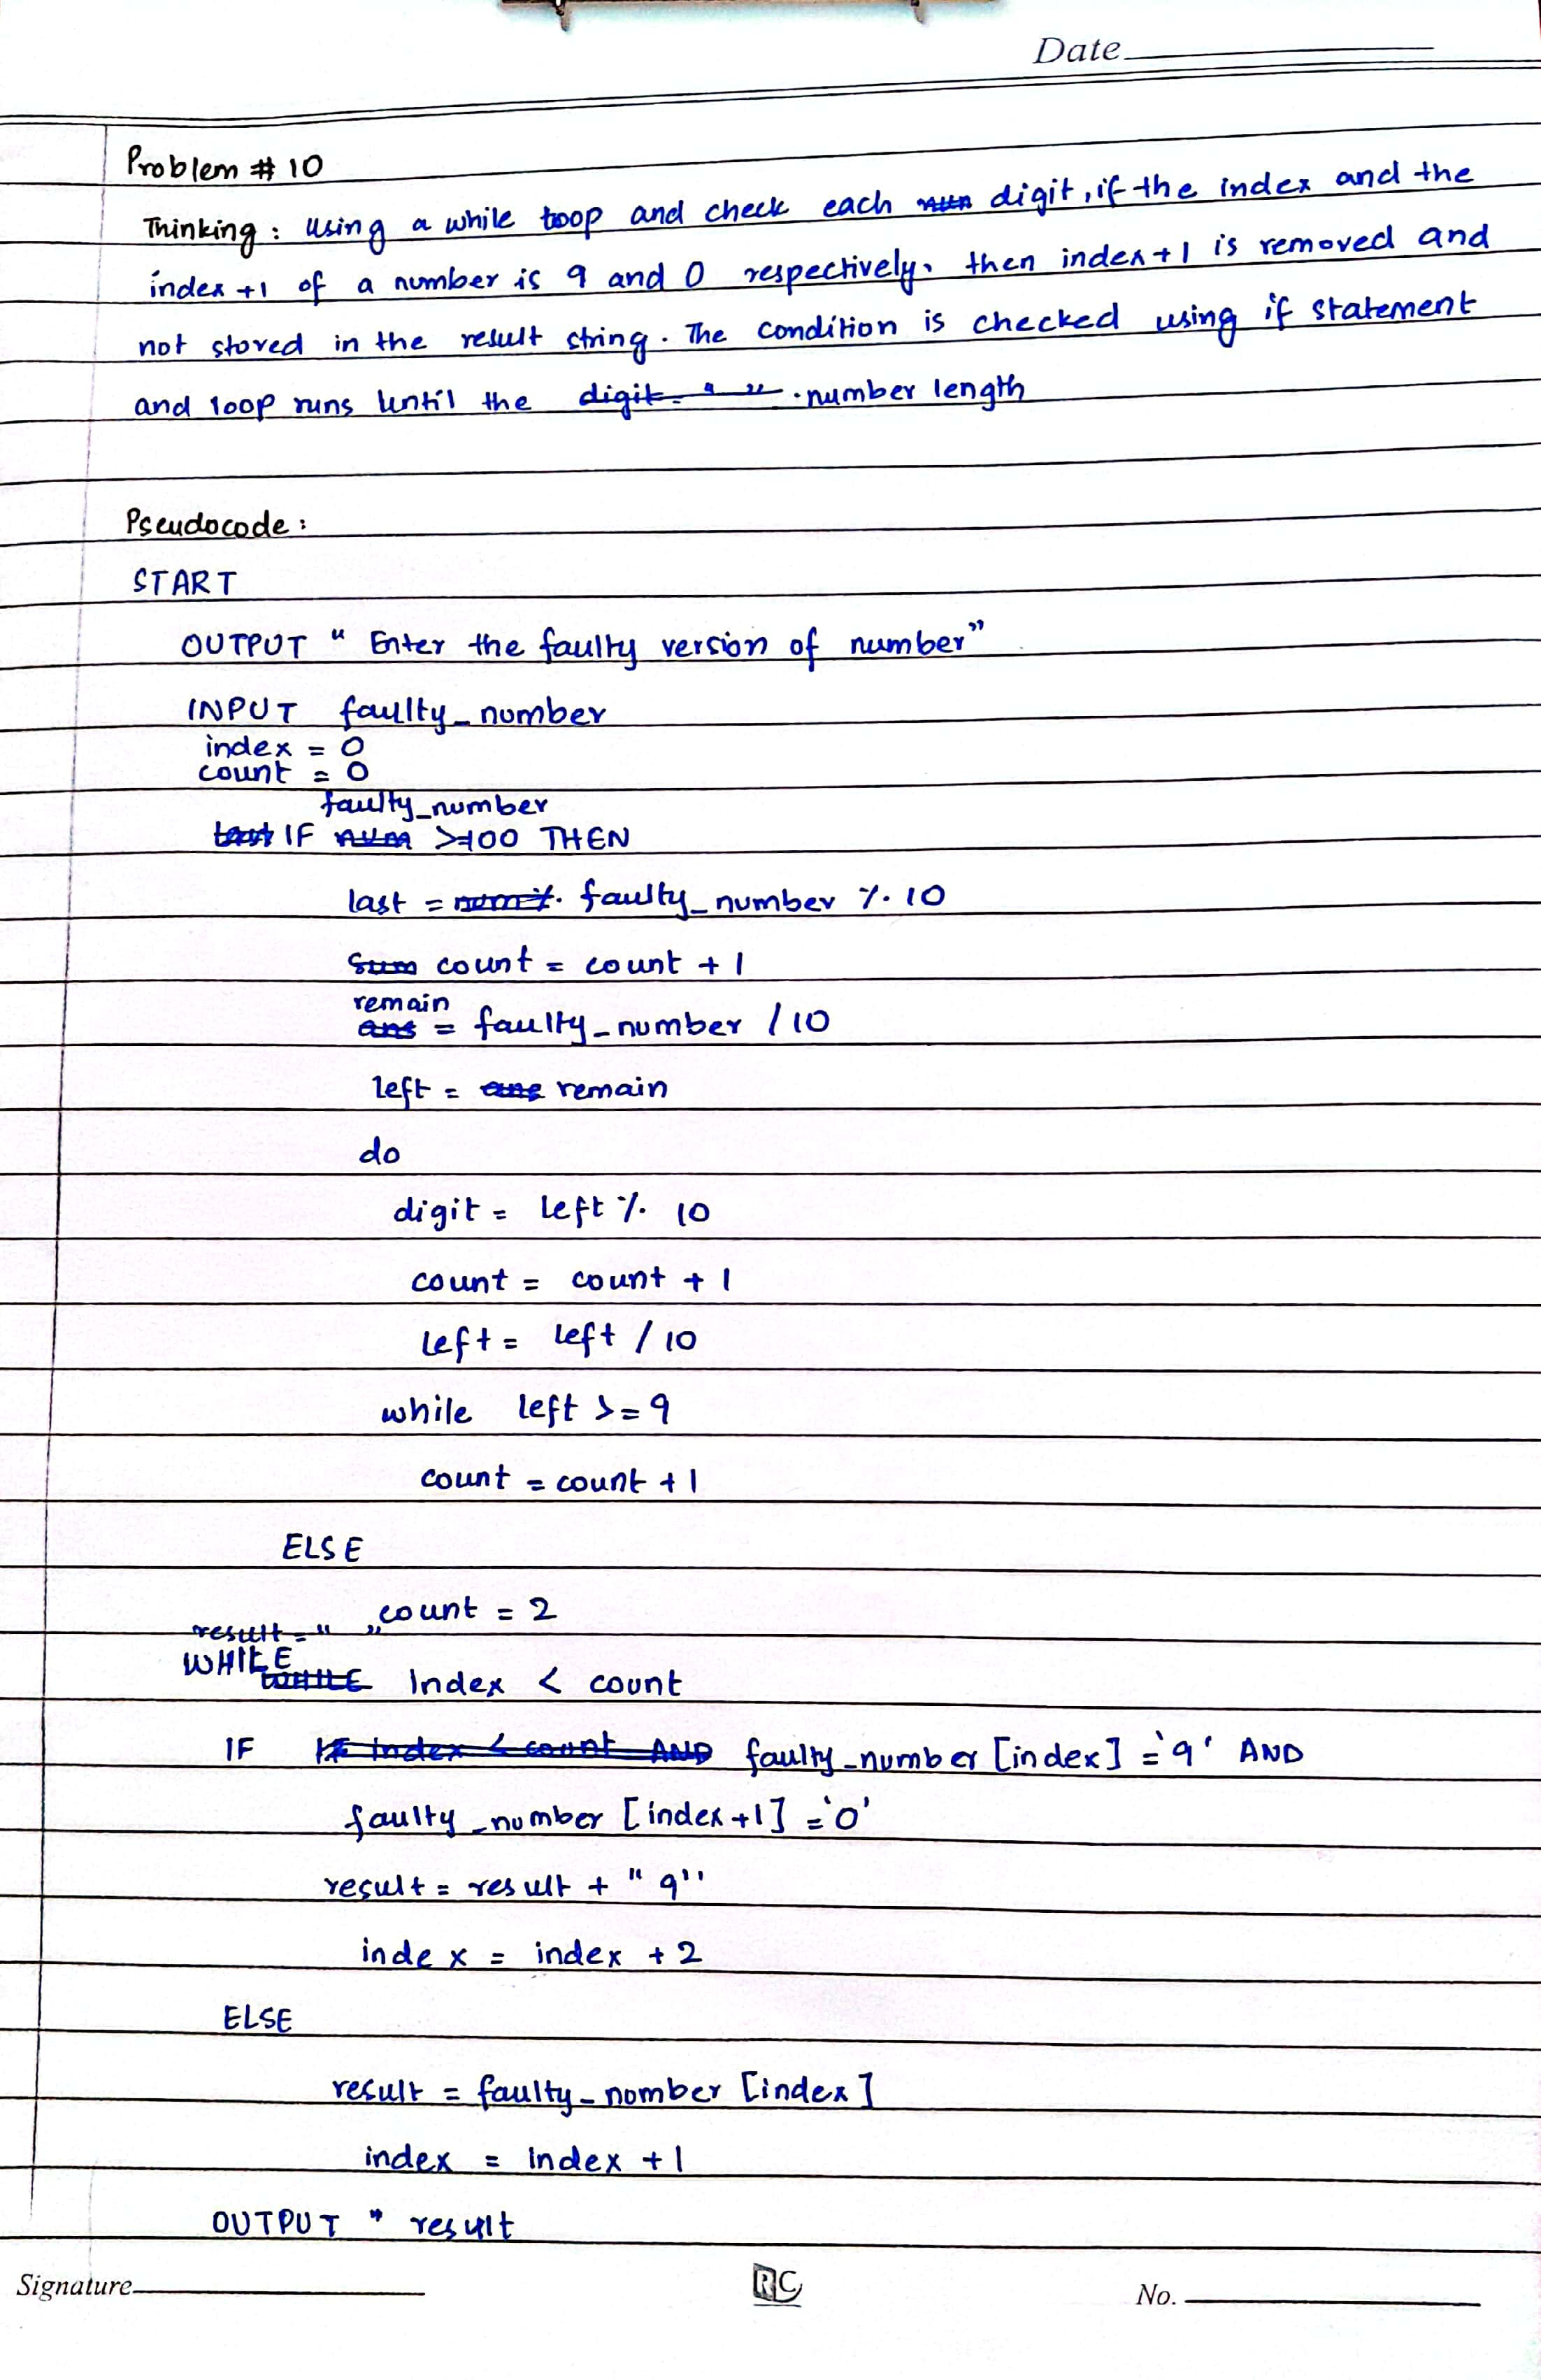 Date
Problem # 10
Thinking : Using a while loop and check each digit, if the index and the
index +1 of a number is 9 and 0 respectively, then index+1 is removed and
not stored in the result string. The condition is checked using if statement
and loop runs until the digit number length
Pseudocode :
START
OUTPUT " Enter the faulty version of number"
INPUT faulty_number
index = 0
count = 0
faulty_number
IF num >=100 THEN
last = num % faulty_number % 10
sum count = count + 1
remain
ans = faulty_number / 10
left = ans remain
do
digit = left % 10
count = count + 1
left = left / 10
while left >= 9
count = count + 1
ELSE
count = 2
result = " "
WHILE WHILE Index < count
IF IF Index < count AND faulty_number [index] = '9' AND
faulty_number [index+1] = '0'
result = result + "9"
index = index + 2
ELSE
result = faulty_nomber [index]
index = index +1
OUTPUT " result
Signature
RC
No.